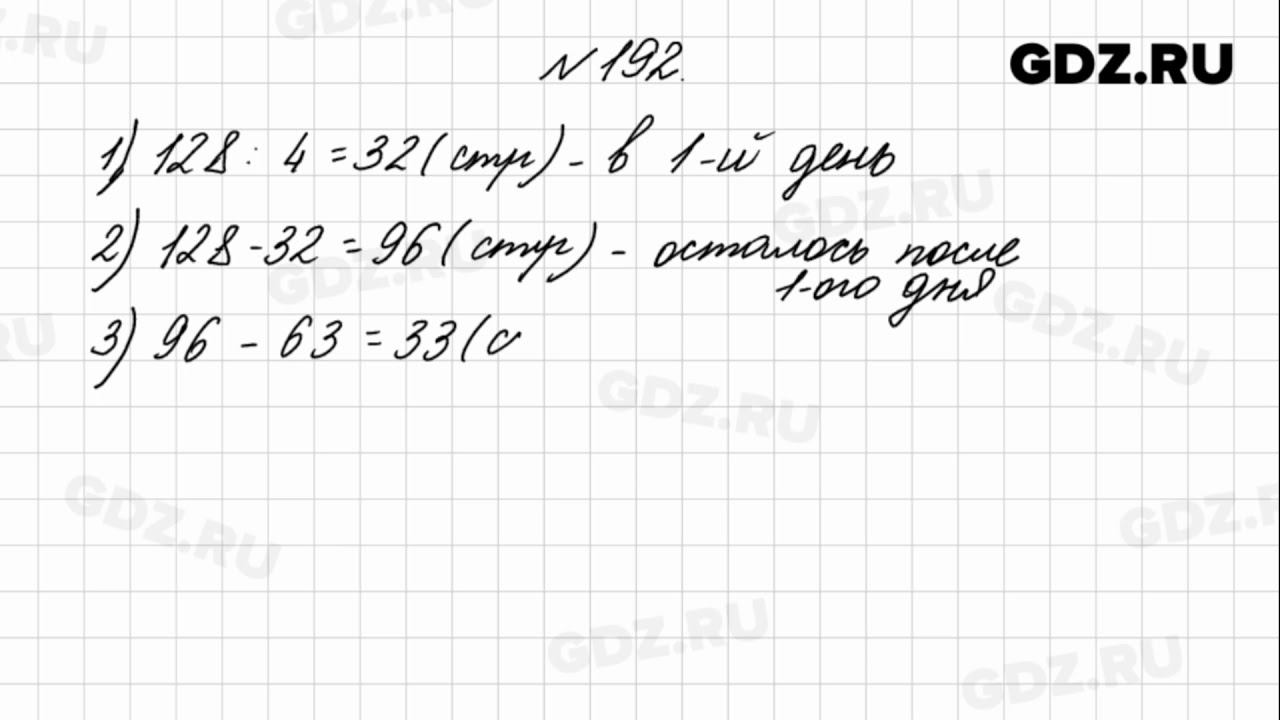 №192.
GDZ.RU
1) 128 : 4 = 32 (стр) - в 1-й день
2) 128 - 32 = 96 (стр) - осталось после
1-ого дня
3) 96 - 63 = 33 (с
GDZ.RU
GDZ.RU
GDZ.RU
GDZ.RU
GDZ.RU
GDZ.RU
GDZ.RU
GDZ.RU
GDZ.RU